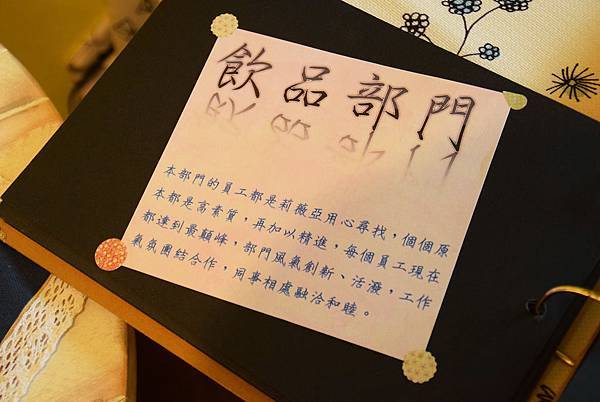 飲品部門
本部門的員工都是莉薇亞用心尋找，個個原
本都是高素質，再加以精進，每個員工現在
都達到最顛峰，部門風氣創新、活潑，工作
氣氛團結合作，同事相處融洽和睦。